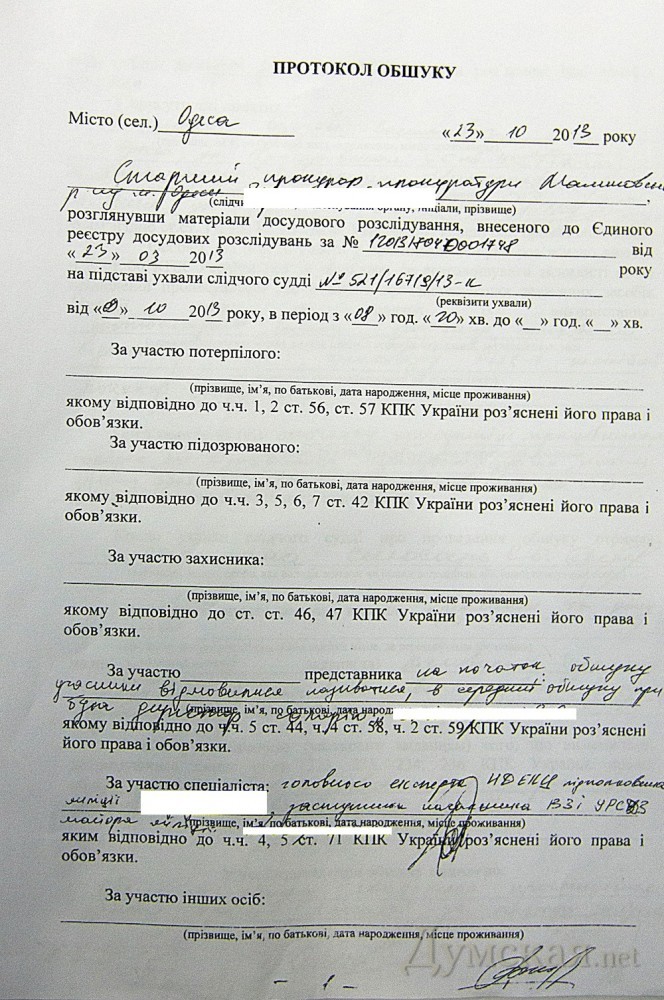 ПРОТОКОЛ ОБШУКУ
Місто (сел.) Одеса
«23» 10 2013 року
Старший прокурор прокуратури
(слідчи
ініціали, прізвище)
розглянувши матеріали досудового розслідування, внесеного до Єдиного
реєстру досудових розслідувань за № від
«23» 03 2013 року
на підставі ухвали слідчого судді № 521/16719/13-к
(реквізити ухвали)
від « » 10 2013 року, в період з «08» год. «20» хв. до «__» год. «__» хв.
За участю потерпілого:
(прізвище, ім’я, по батькові, дата народження, місце проживання)
якому відповідно до ч.ч. 1, 2 ст. 56, ст. 57 КПК України роз’яснені його права і
обов’язки.
За участю підозрюваного:
(прізвище, ім’я, по батькові, дата народження, місце проживання)
якому відповідно до ч.ч. 3, 5, 6, 7 ст. 42 КПК України роз’яснені його права і
обов’язки.
За участю захисника:
(прізвище, ім’я, по батькові, дата народження, місце проживання)
якому відповідно до ст. ст. 46, 47 КПК України роз’яснені його права і
обов’язки.
За участю представника на початок обшуку
учасники відмовилися називатися, в середині обшуку
(прізвище, ім’я, по батькові, дата народ
якому відповідно до ч.ч. 5 ст. 44, ч. 4 ст. 58, ч. 2 ст. 59 КПК України роз’яснені
його права і обов’язки.
За участю спеціаліста: головного експерта НДЕКЦ підполковника
міліції заступника начальника
майора
(прізвище, ім’я, по батькові, дата народження, місце проживання)
яким відповідно до ч.ч. 4, 5 ст. 71 КПК України роз’яснені його права і
обов’язки.
За участю інших осіб:
(прізвище, ім’я, по батькові, дата народження, місце проживання)
Думская.net
- 1 -